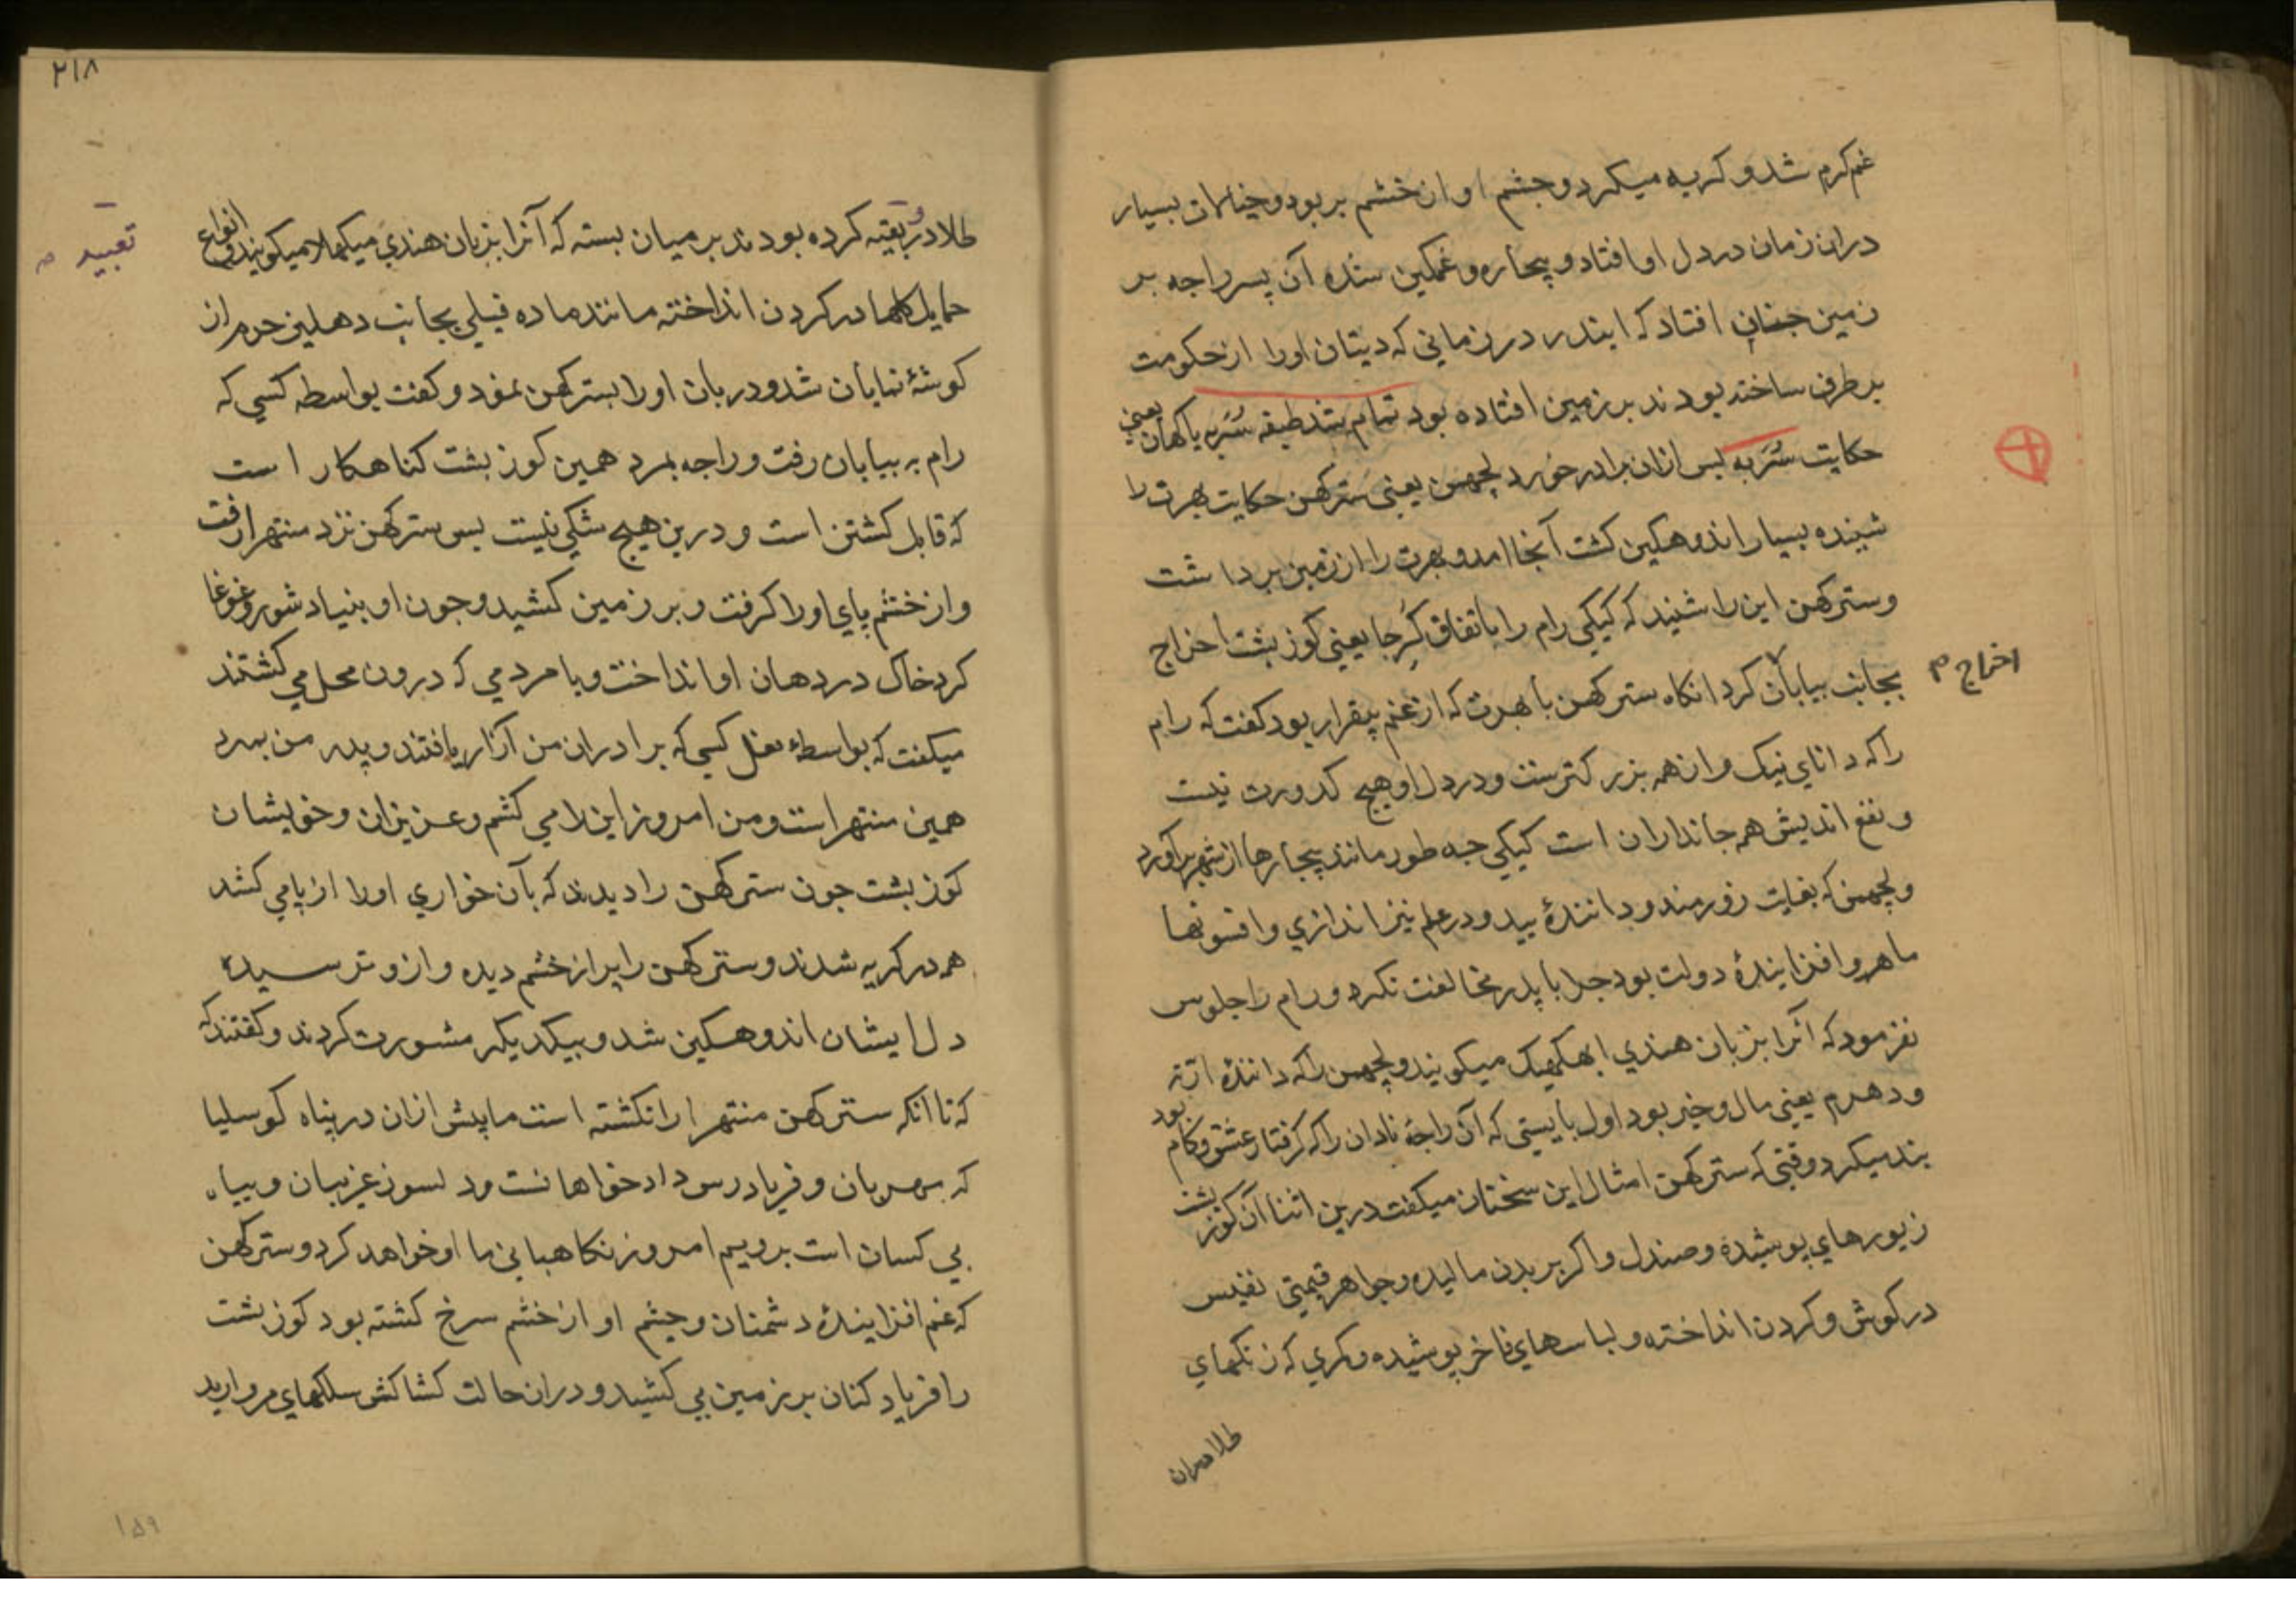 غم گرم شد و کریه میکرد و چشم او از خشم پر بود و خیالات بسیار
دران زمان در دل او افتاد و بیچاره و غمکین شده آن پسر راجه بر
زمین چنان افتاد که ایندر در زمانی که دیتان اورا از حکومت
بر طرف ساخته بودند بر زمین افتاده بود تمام شد طبقه سُتَربه یاکهان یعنی
حکایت سُتَربه پس ازان برادر خورد لچهمن یعنی سترکهن حکایت بهرت را
شینده بسیار اندوهکین کشت آنجا امد و بهرت را از زمین برداشت
و سترکهن این را شنید که کیکی رام را باتفاق کُبرجا یعنی کوز بشت اخراج
بجانب بیابان کرد انکاه سترکهن با بهرت که از غم بیقرار بود کفت که رام
اخراج م
را که دانای نیک و از همه بزرکترست و در دل او هیچ کدورت نیست
و نفع اندیش همه جانداران است کیکی چه طور مانند بیچارها از شهر برآورد
و لچهمن که بغایت زورمند و دانندهٔ بید و در علم تیر اندازی و افسونها
ماهر و افزایندهٔ دولت بود چرا با پدر مخالفت نکرد و رام را جلوس
نفرمود که آنرا بزبان هندی ابهکهیک میکویند و لچهمن را که دانندهٔ ارته
و دهرم یعنی مال و خیر بود اول بایستی که آن راجهٔ نادان را که کرفتار عشق و کام بود
بند میکرد وقتی که سترکهن امثال این سخنان میکفت درین اثنا آن کوز بشت
زیورهای پوشیده و صندل و اکر بر بدن مالیده و جواهر قیمتی نفیس
در کوش و کردن انداخته و لباسهای فاخر پوشیده و کمری که زنکهای
طلا دران
۲۱۸
طلا درو تعبیه کرده بودند بر میان بسته که آنرا بزبان هندی میکهلا میکویند و انواع
تعبیه م
حمایل کلها در کردن انداخته مانند ماده فیلی بجانب دهلیز حرم از
کوشهٔ نمایان شد و دربان اورا بسترکهن نمود و کفت بواسطه کسی که
رام به بیابان رفت و راجه بمرد همین کوز بشت کناهکار است
که قابل کشتن است و درین هیچ شکی نیست پس سترکهن نزد منتهرا رفت
و از خشم پای اورا کرفت و بر زمین کشید و چون او بنیاد شور و غوغا
کرد خاک در دهان او انداخت و با مردمی که درون محل می کشتند
میکفت که بواسطهٔ فعل کسی که برادران من آزار یافتند و پدر من بمرد
همین منتهرا است و من امروز این را می کشم و عزیزان و خویشان
کوز بشت چون سترکهن را دیدند که بآن خواری اورا از پا می کشد
همه در کریه شدند و سترکهن را پر از خشم دیده و ازو ترسیده
دل ایشان اندوهکین شد و بیکدیکر مشورت کردند و کفتند که
که تا انکه سترکهن منتهرا را نکشته است ما پیش ازان در پناه کوسلیا
که مهربان و فریادرس دادخواهانست و دلسوز غریبان و پناه
بی کسان است برویم امروز نکاهبانی ما او خواهد کرد و سترکهن
که غم افزایندهٔ دشمنان و چشم او از خشم سرخ کشته بود کوز بشت
را فریاد کنان بر زمین می کشید و دران حالت کشاکش سلکهای مروارید
۱۵۹